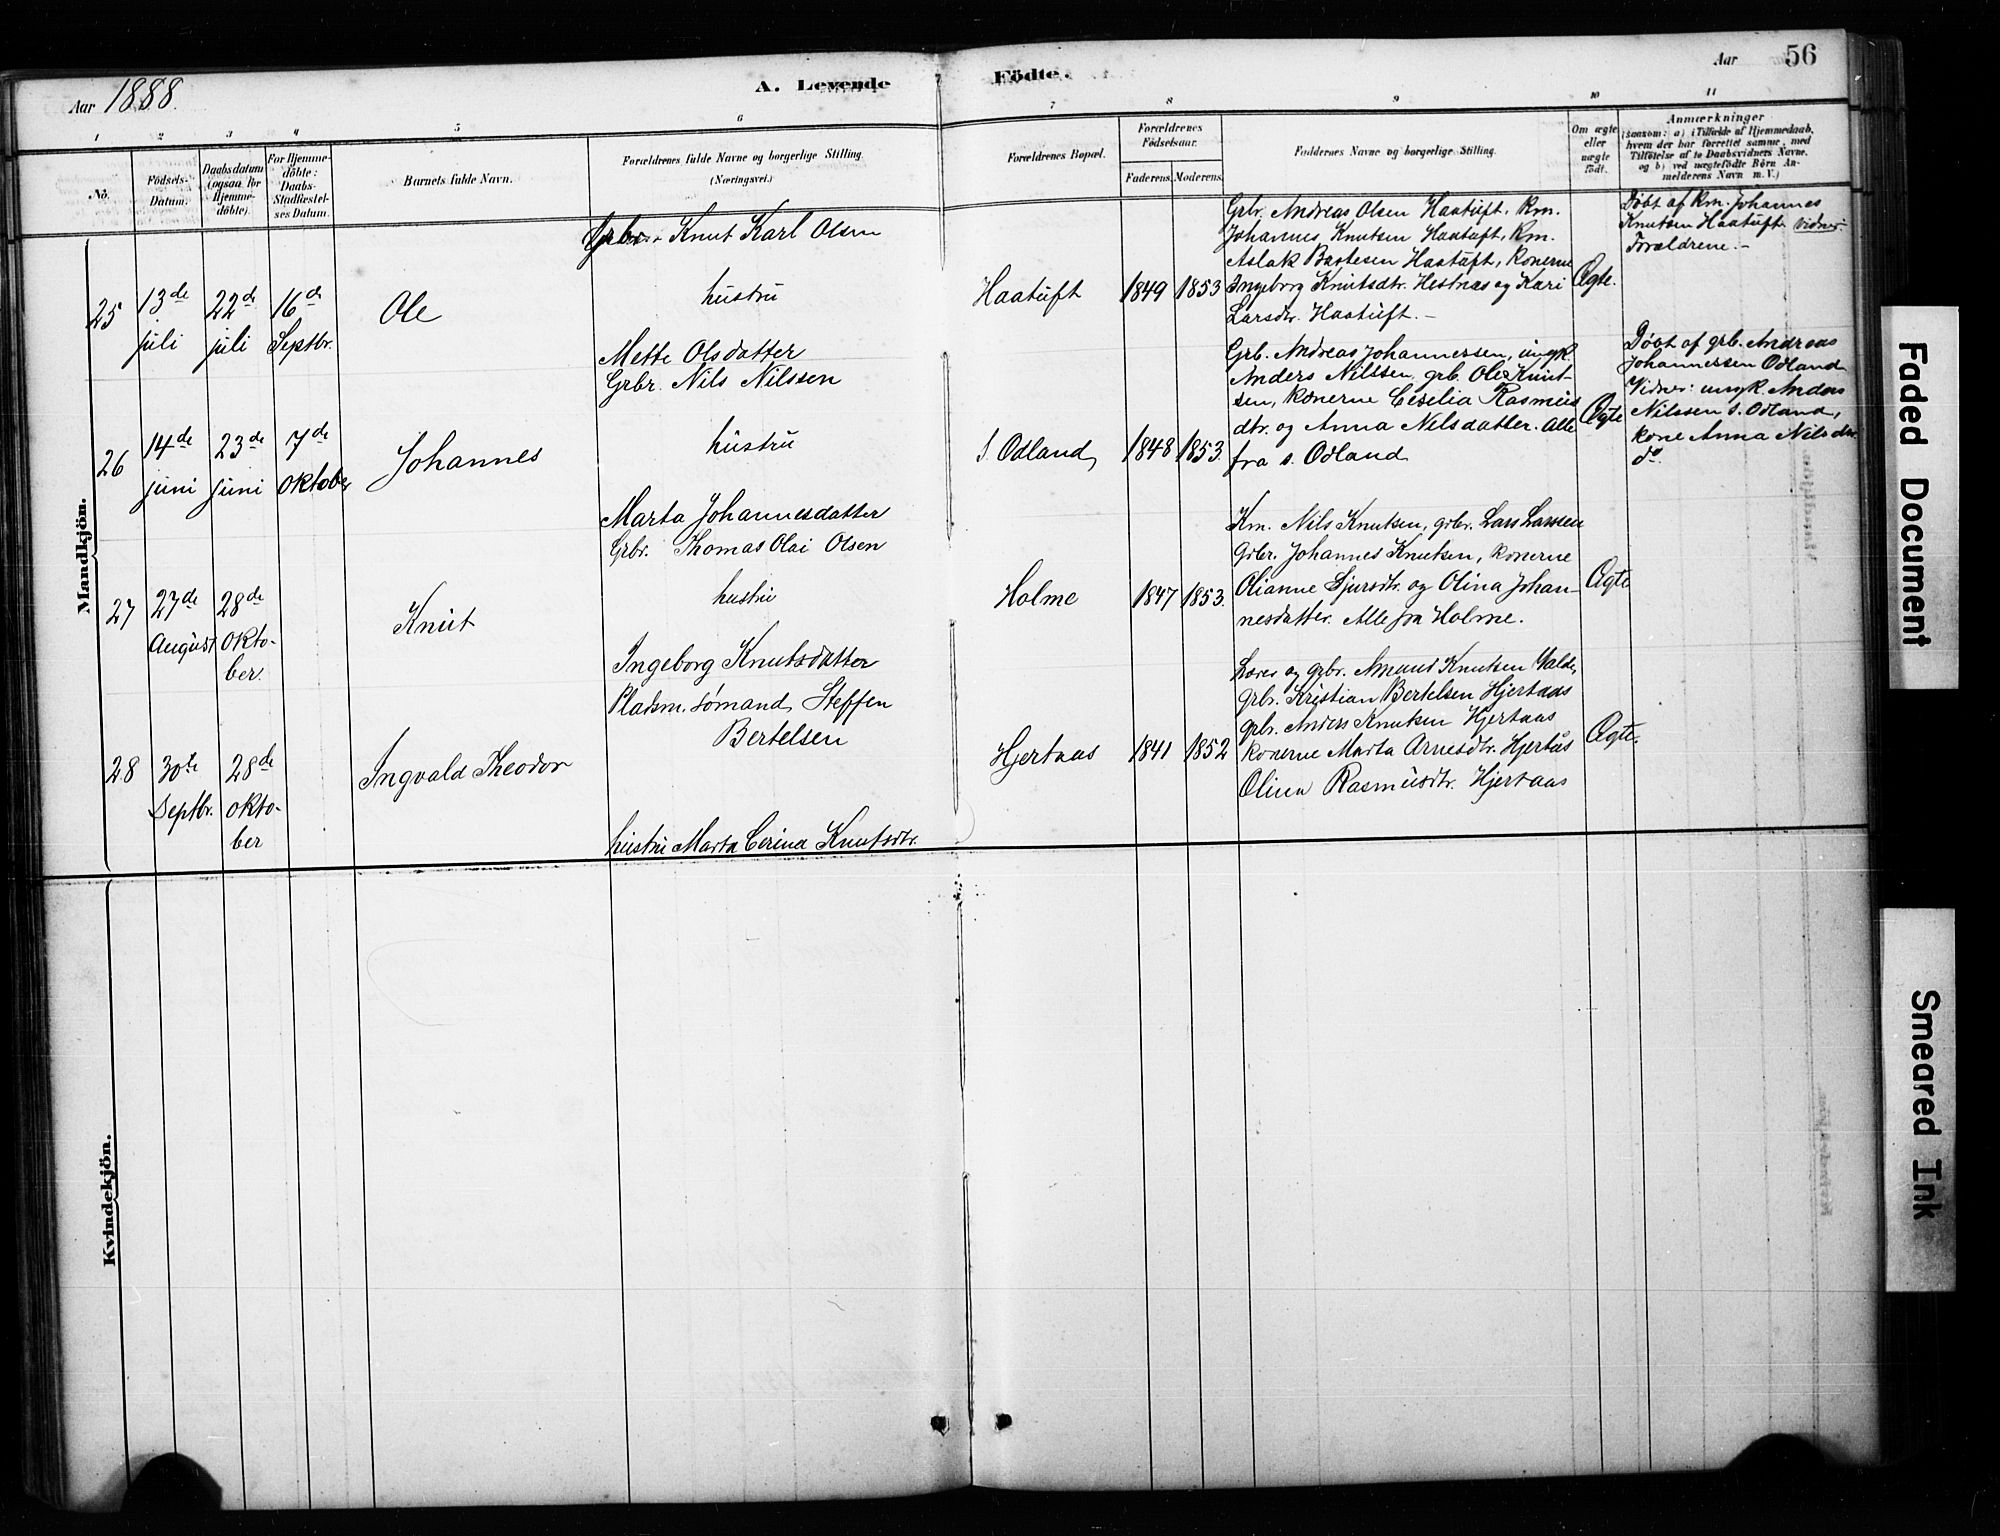 Aar 1888.
A. Levende Födte.
Aar 56
1 2 3 4 5 6 7 8 9 10 11
No.
Födsels-
Datum.
Daabsdatum
(ogsaa for
Hjemme-
döbte).
For Hjemme-
döbte:
Daabs-
Stadfæstel-
ses Datum.
Barnets fulde Navn.
Forældrenes fulde Navne og borgerlige Stilling.
(Næringsvei.)
Forældrenes Bopæl.
Forældrenes
Födselsaar.
Faderens. Moderens.
Faddernes Navne og borgerlige Stilling.
Om ægte
eller
uægte
födt.
Anmærkninger
(saasom: a) i Tilfælde af Hjemmedaab,
hvem der har forrettet samme, med
Tilföielse af to Daabsvidners Navne,
og b) ved uægtefödte Börn An-
melderens Navn m. V.)
Mandkjön.
25
13de
juli
22de
juli
16de
Septbr.
Ole
Grbr. Knut Karl Olsen
hustru
Mette Olsdatter
Haatuft
1849
1853
Grbr. Andreas Olsen Haatuft, Km.
Johannes Knutsen Haatuft, Km.
Aslak Bastesen Haatuft, konerne
Ingeborg Knutsdtr. Hestnæs og Kari
Larsdtr. Haatuft. –
Ægte.
Døbt af Km. Johannes
Knutsen Haatuft. Vidner:
Forældrene. –
26
14de
juni
23de
juni
7de
Oktober
Johannes
Grbr. Nils Nilssen
hustru
Marta Johannesdatter
S. Odland,
1848
1853.
Grb. Andreas Johannessen, ungk.
Anders Nilssen, grb. Ole Knut-
sen, konerne Cesilia Rasmus
dtr. og Anna Nilsdatter. Alle
fra S. Odland
Ægte
Døbt af grb. Andreas
Johannessen Odland
Vidner: ungk. Anders
Nilssen S. Odland,
kone Anna Nilsdtr.
do.
27
27de
August
28de
Okto-
ber.
Knut
Grbr. Thomas Olai Olsen
hustru
Ingeborg Knutsdatter
Holme
1847
1853.
Km. Nils Knutsen, grbr. Lars Larssen
Grbr. Johannes Knutsen, konerne
Olianne Sjursdtr. og Olina Johan-
nesdatter. Alle fra Holme.
Ægte
28
30te
Septbr.
28de
Okto-
ber
Ingvald Theodor
Pladsm. sømand, Steffen
Bertelsen
hustru Marta Cerina Knutsdtr.
Hjertaas
1841
1852
Lærer og grbr. Amund Knutsen Valde,
grbr. Kristian Bertelsen Hjertaas
grbr. Anders Knutsen Hjertaas
konerne Marta Arnesdtr. Hjertås
Olina Rasmusdtr. Hjertaas
Ægte.
Kvindekjön.
Faded Document
Smeared Ink